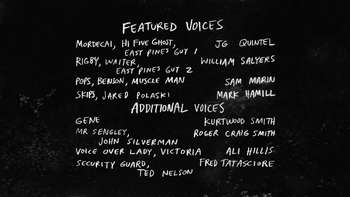 FEATURED VOICES
MORDECAI, HI FIVE GHOST, JG QUINTEL
EAST PINES GUY 1
RIGBY, WAITER, WILLIAM SALYERS
EAST PINES GUY 2
POPS, BENSON, MUSCLE MAN SAM MARIN
SKIPS, JARED POLASKI MARK HAMILL
ADDITIONAL VOICES
GENE KURTWOOD SMITH
MR SENGLEY, ROGER CRAIG SMITH
JOHN SILVERMAN
VOICE OVER LADY, VICTORIA ALI HILLIS
SECURITY GUARD, FRED TATASCIORE
TED NELSON